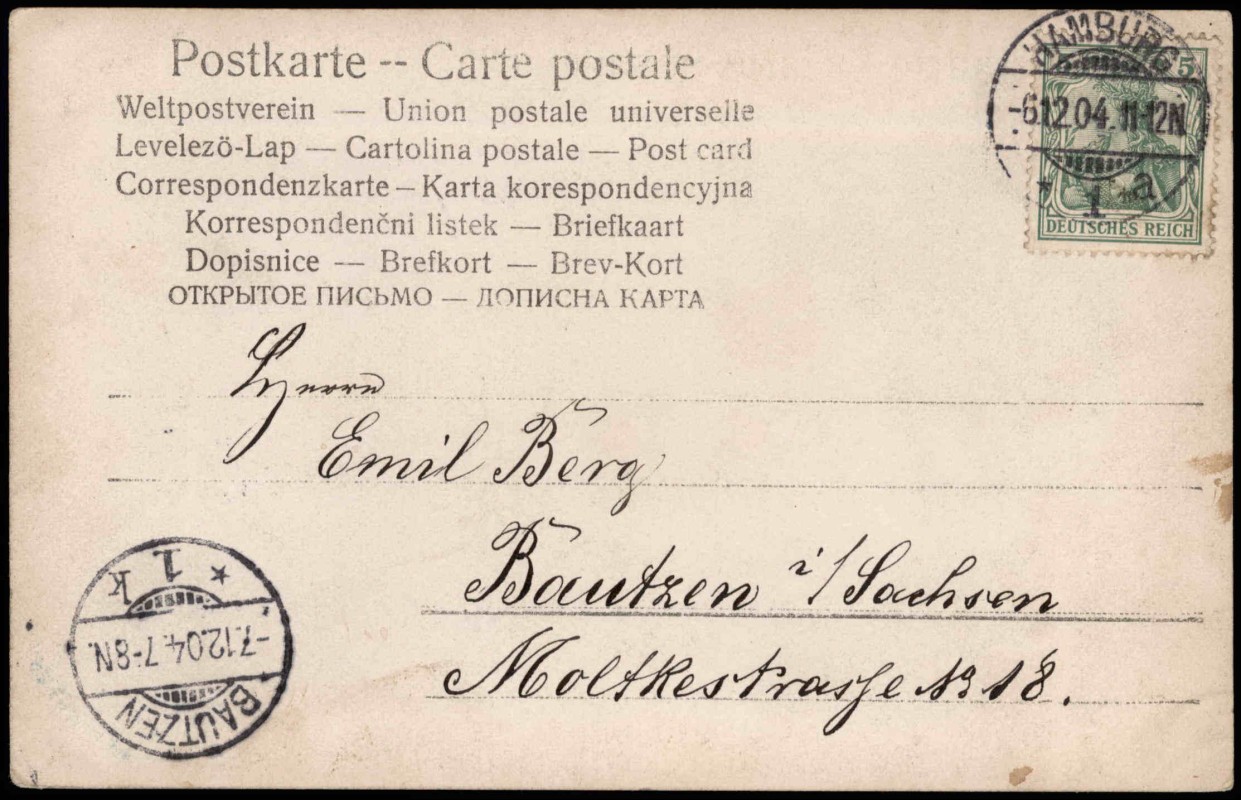 Postkarte -- Carte postale
Weltpostverein — Union postale universelle
Levelező-Lap — Cartolina postale — Post card
Correspondenzkarte – Karta korespondencyjna
Korrespondenční listek — Briefkaart
Dopisnice — Brefkort — Brev-Kort
ОТКРЫТОЕ ПИСЬМО — ДОПИСНА КАРТА
HAMBURG
-6.12.04. 11-12N
* 1 a
5
DEUTSCHES REICH
Herrn
Emil Berg
Bautzen i/Sachsen
Moltkestrasse № 18.
BAUTZEN
-7.12.04. 7-8N.
* 1 k